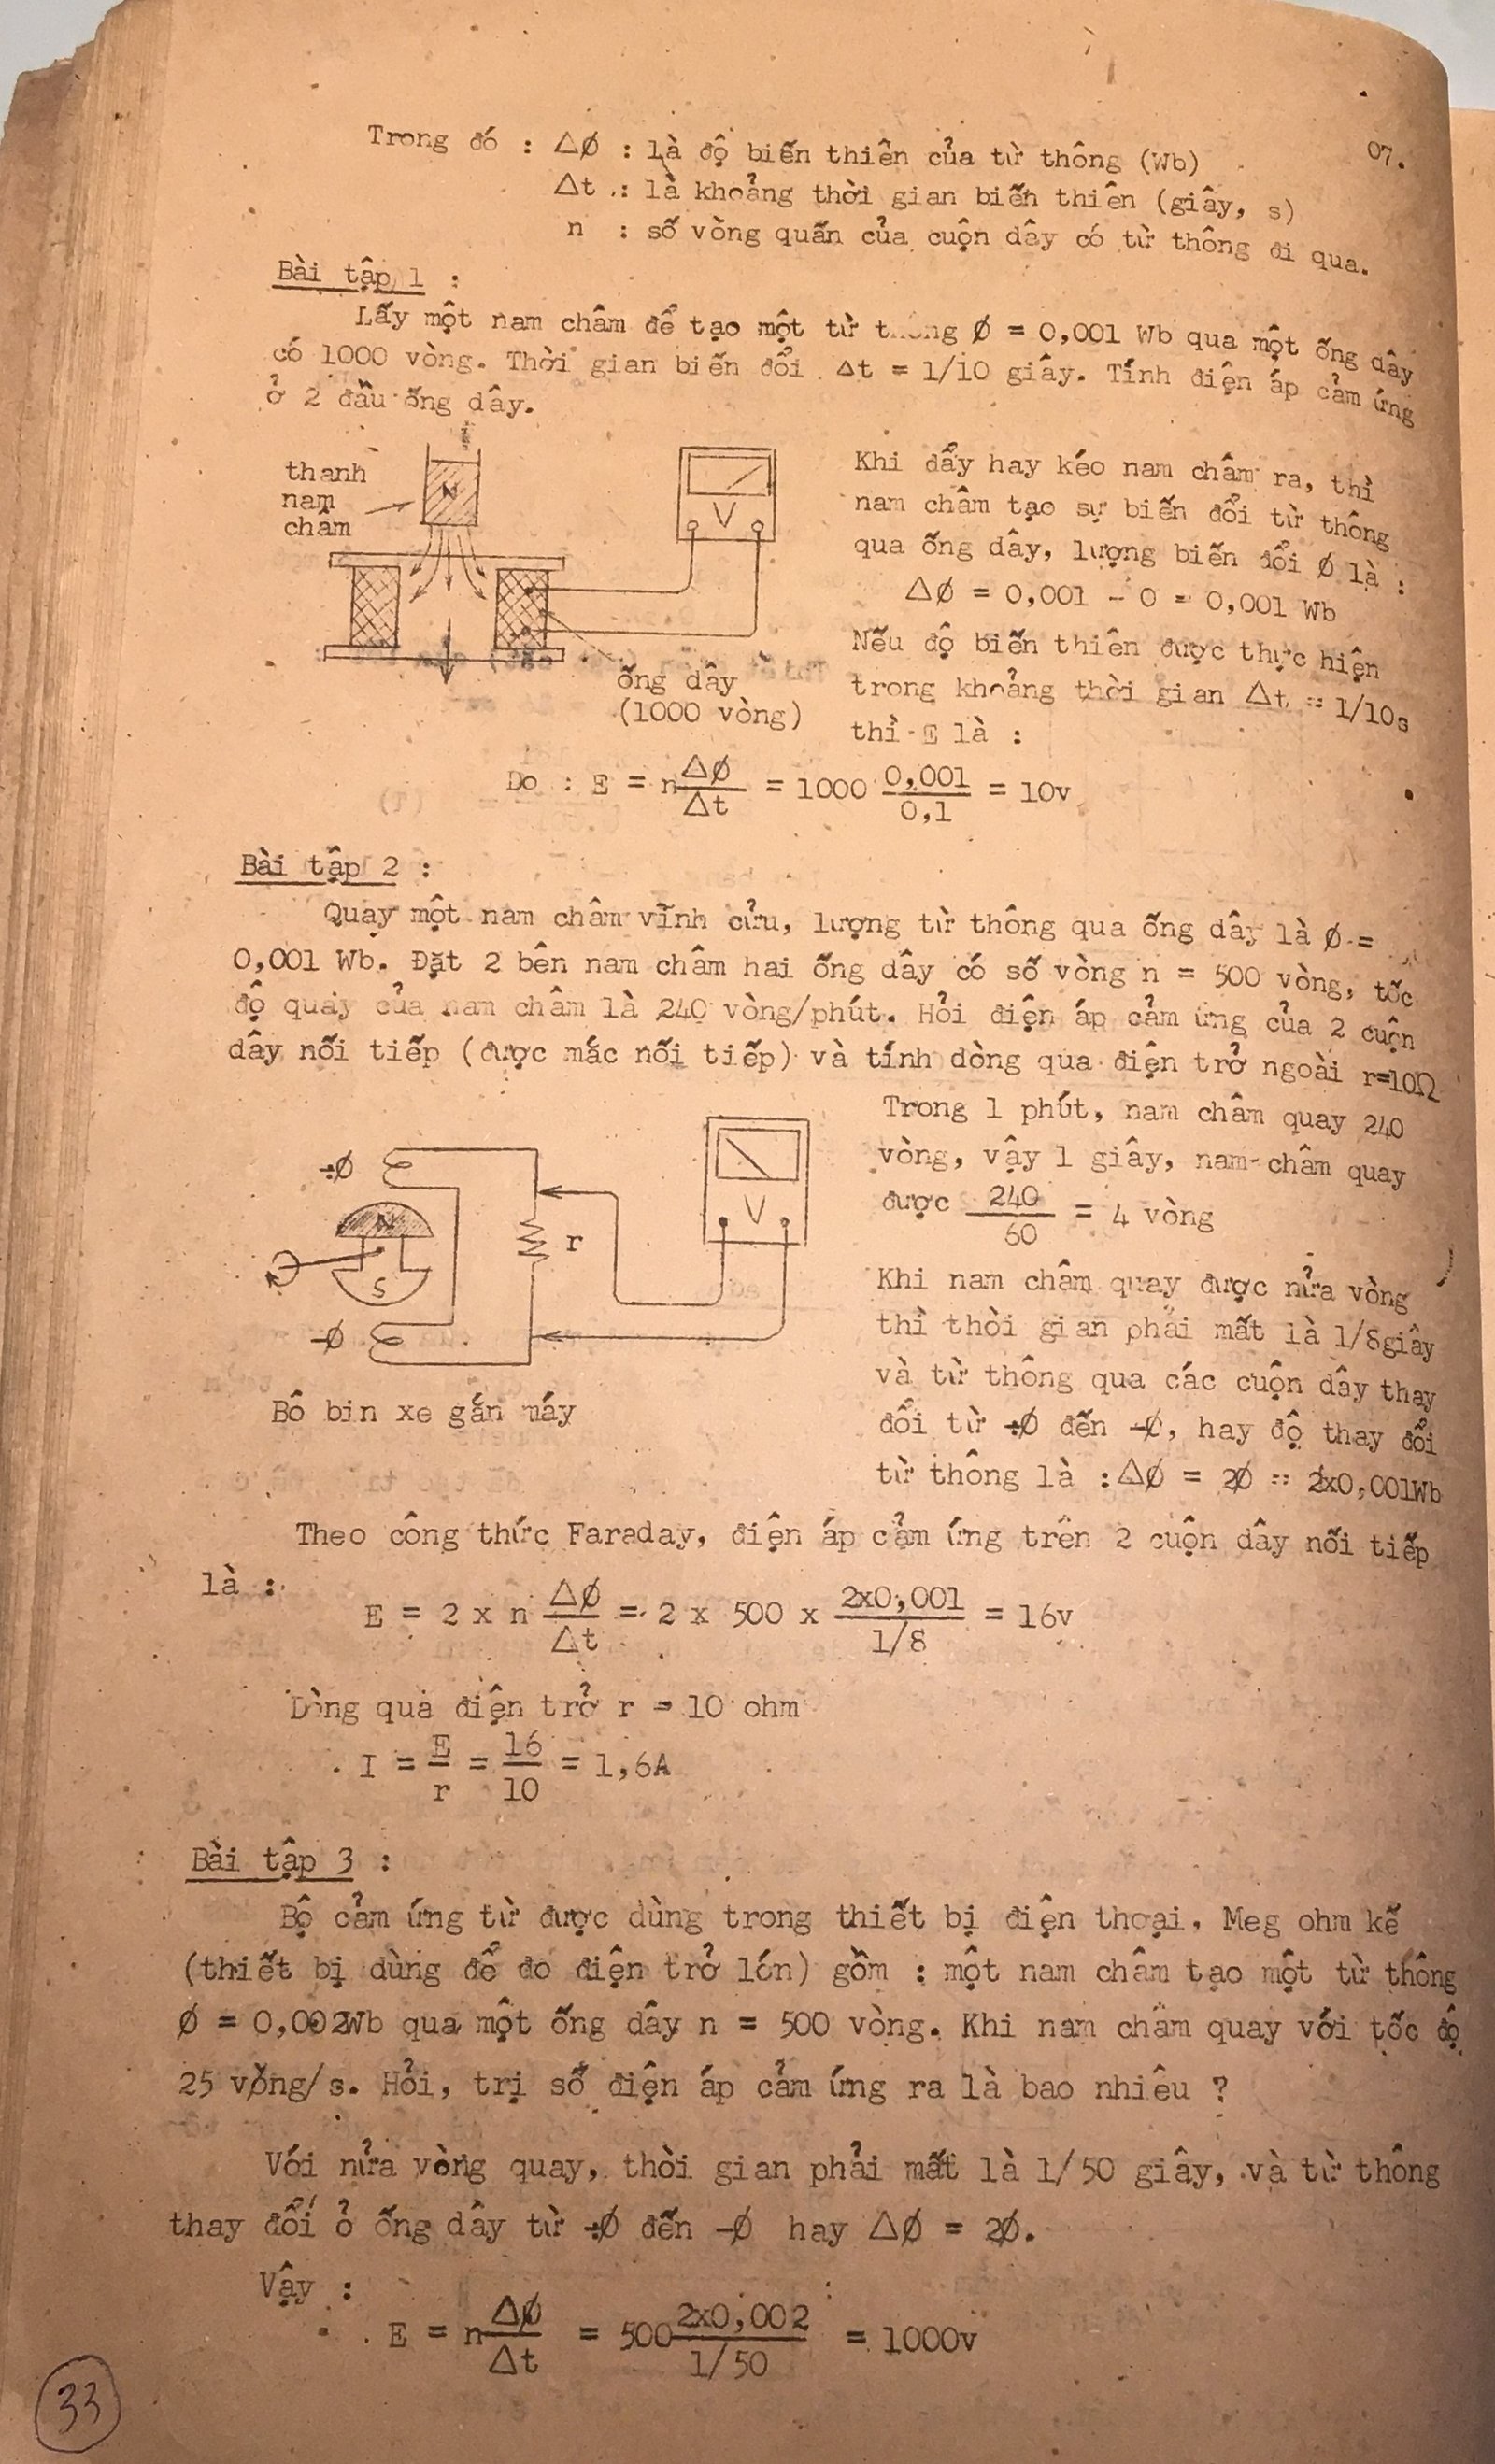 07.
Trong đó : Δø : là độ biến thiên của từ thông (Wb)
Δt : là khoảng thời gian biến thiên (giây, s)
n : số vòng quấn của cuộn dây có từ thông đi qua.
Bài tập 1 :
Lấy một nam châm để tạo một từ thông ø = 0,001 Wb qua một ống dây
có 1000 vòng. Thời gian biến đổi Δt = 1/10 giây. Tính điện áp cảm ứng
ở 2 đầu ống dây.
thanh
nam
châm
N
V
ống dây
(1000 vòng)
Khi đẩy hay kéo nam châm ra, thì
nam châm tạo sự biến đổi từ thông
qua ống dây, lượng biến đổi ø là :
Δø = 0,001 - 0 = 0,001 Wb
Nếu độ biến thiên được thực hiện
trong khoảng thời gian Δt = 1/10s
thì E là :
Do : E = n Δø/Δt = 1000 0,001/0,1 = 10v
Bài tập 2 :
Quay một nam châm vĩnh cửu, lượng từ thông qua ống dây là ø =
0,001 Wb. Đặt 2 bên nam châm hai ống dây có số vòng n = 500 vòng, tốc
độ quay của nam châm là 240 vòng/phút. Hỏi điện áp cảm ứng của 2 cuộn
dây nối tiếp (được mắc nối tiếp) và tính dòng qua điện trở ngoài r=10Ω
+ø
N
S
-ø
r
V
Bô bin xe gắn máy
Trong 1 phút, nam châm quay 240
vòng, vậy 1 giây, nam châm quay
được 240/60 = 4 vòng
Khi nam châm quay được nửa vòng
thì thời gian phải mất là 1/8giây
và từ thông qua các cuộn dây thay
đổi từ +ø đến -ø, hay độ thay đổi
từ thông là : Δø = 2ø = 2x0,001Wb
Theo công thức Faraday, điện áp cảm ứng trên 2 cuộn dây nối tiếp
là :
E = 2 x n Δø/Δt = 2 x 500 x 2x0,001/1/8 = 16v
Dòng qua điện trở r = 10 ohm
I = E/r = 16/10 = 1,6A
Bài tập 3 :
Bộ cảm ứng từ được dùng trong thiết bị điện thoại, Meg ohm kế
(thiết bị dùng để đo điện trở lớn) gồm : một nam châm tạo một từ thông
ø = 0,002Wb qua một ống dây n = 500 vòng. Khi nam châm quay với tốc độ
25 vòng/s. Hỏi, trị số điện áp cảm ứng ra là bao nhiêu ?
Với nửa vòng quay, thời gian phải mất là 1/50 giây, và từ thông
thay đổi ở ống dây từ +ø đến -ø hay Δø = 2ø.
Vậy :
E = n Δø/Δt = 500 2x0,002/1/50 = 1000v
33